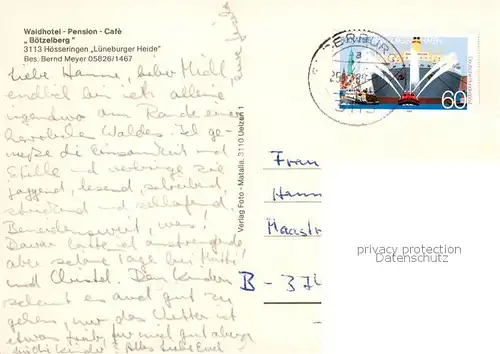 Waldhotel - Pension - Café
„Bötzelberg"
3113 Hösseringen „Lüneburger Heide"
Bes. Bernd Meyer 05826/1467
Liebe Hanne, lieber Michl,
endlich bin ich alleine
irgendwo am Rande eines
Waldes. Ich ge-
nieße die Einsamkeit und
Stille und verbringe sie
joggend, lesend, schreibend,
und schlafend,
Beneidenswert, was!
Davor hatte ich anstrengende,
aber schöne Tage bei Mutti
und Christel. Den Kindern
scheint es auch gut zu
gehen, nur das Wetter ist
etwas für mich gut
Alles Liebe Euch
Verlag Foto - Matalla, 3110 Uelzen 1
60
Frau
Hann
Maastr
B - 374
privacy protection
Datenschutz